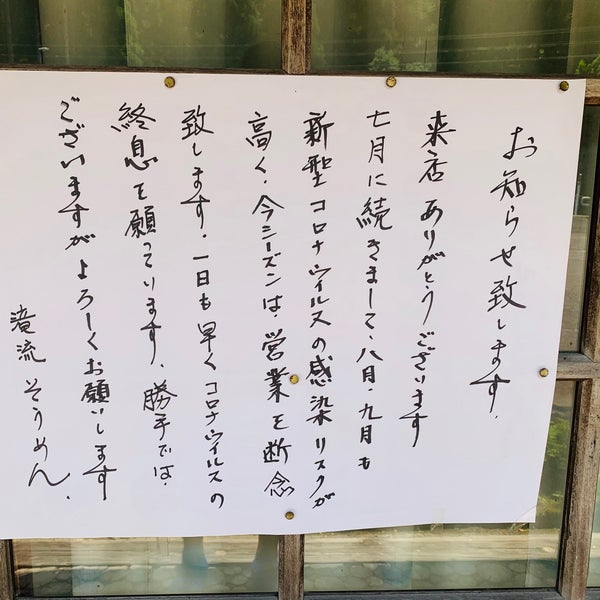 お知らせ致します.
来店ありがとうございます
七月に続きまして、八月・九月も
新型コロナウイルスの感染リスクが
高く、今シーズンは、営業を断念
致します。一日も早くコロナウイルスの
終息を願っています。勝手では、
ございますがよろしくお願いします
滝流そうめん.